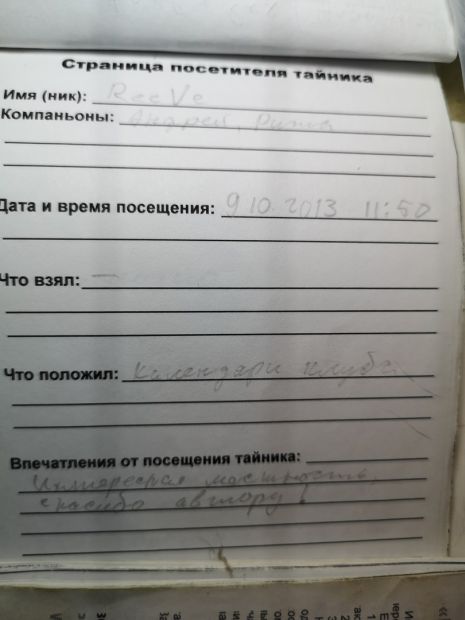 Страница посетителя тайника
Имя (ник): ReeVe
Компаньоны: Андрей,
Дата и время посещения: 9 10. 2013 11:50
Что взял: —
Что положил: Календари клуба
Впечатления от посещения тайника:
Интересная местность,
спасибо автору!